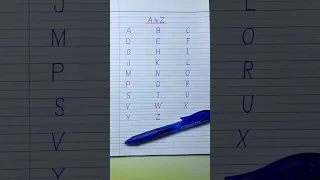 A to Z
A B C
D E F
G H I
J K L
M N O
P Q R
S T U
V W X
Y Z